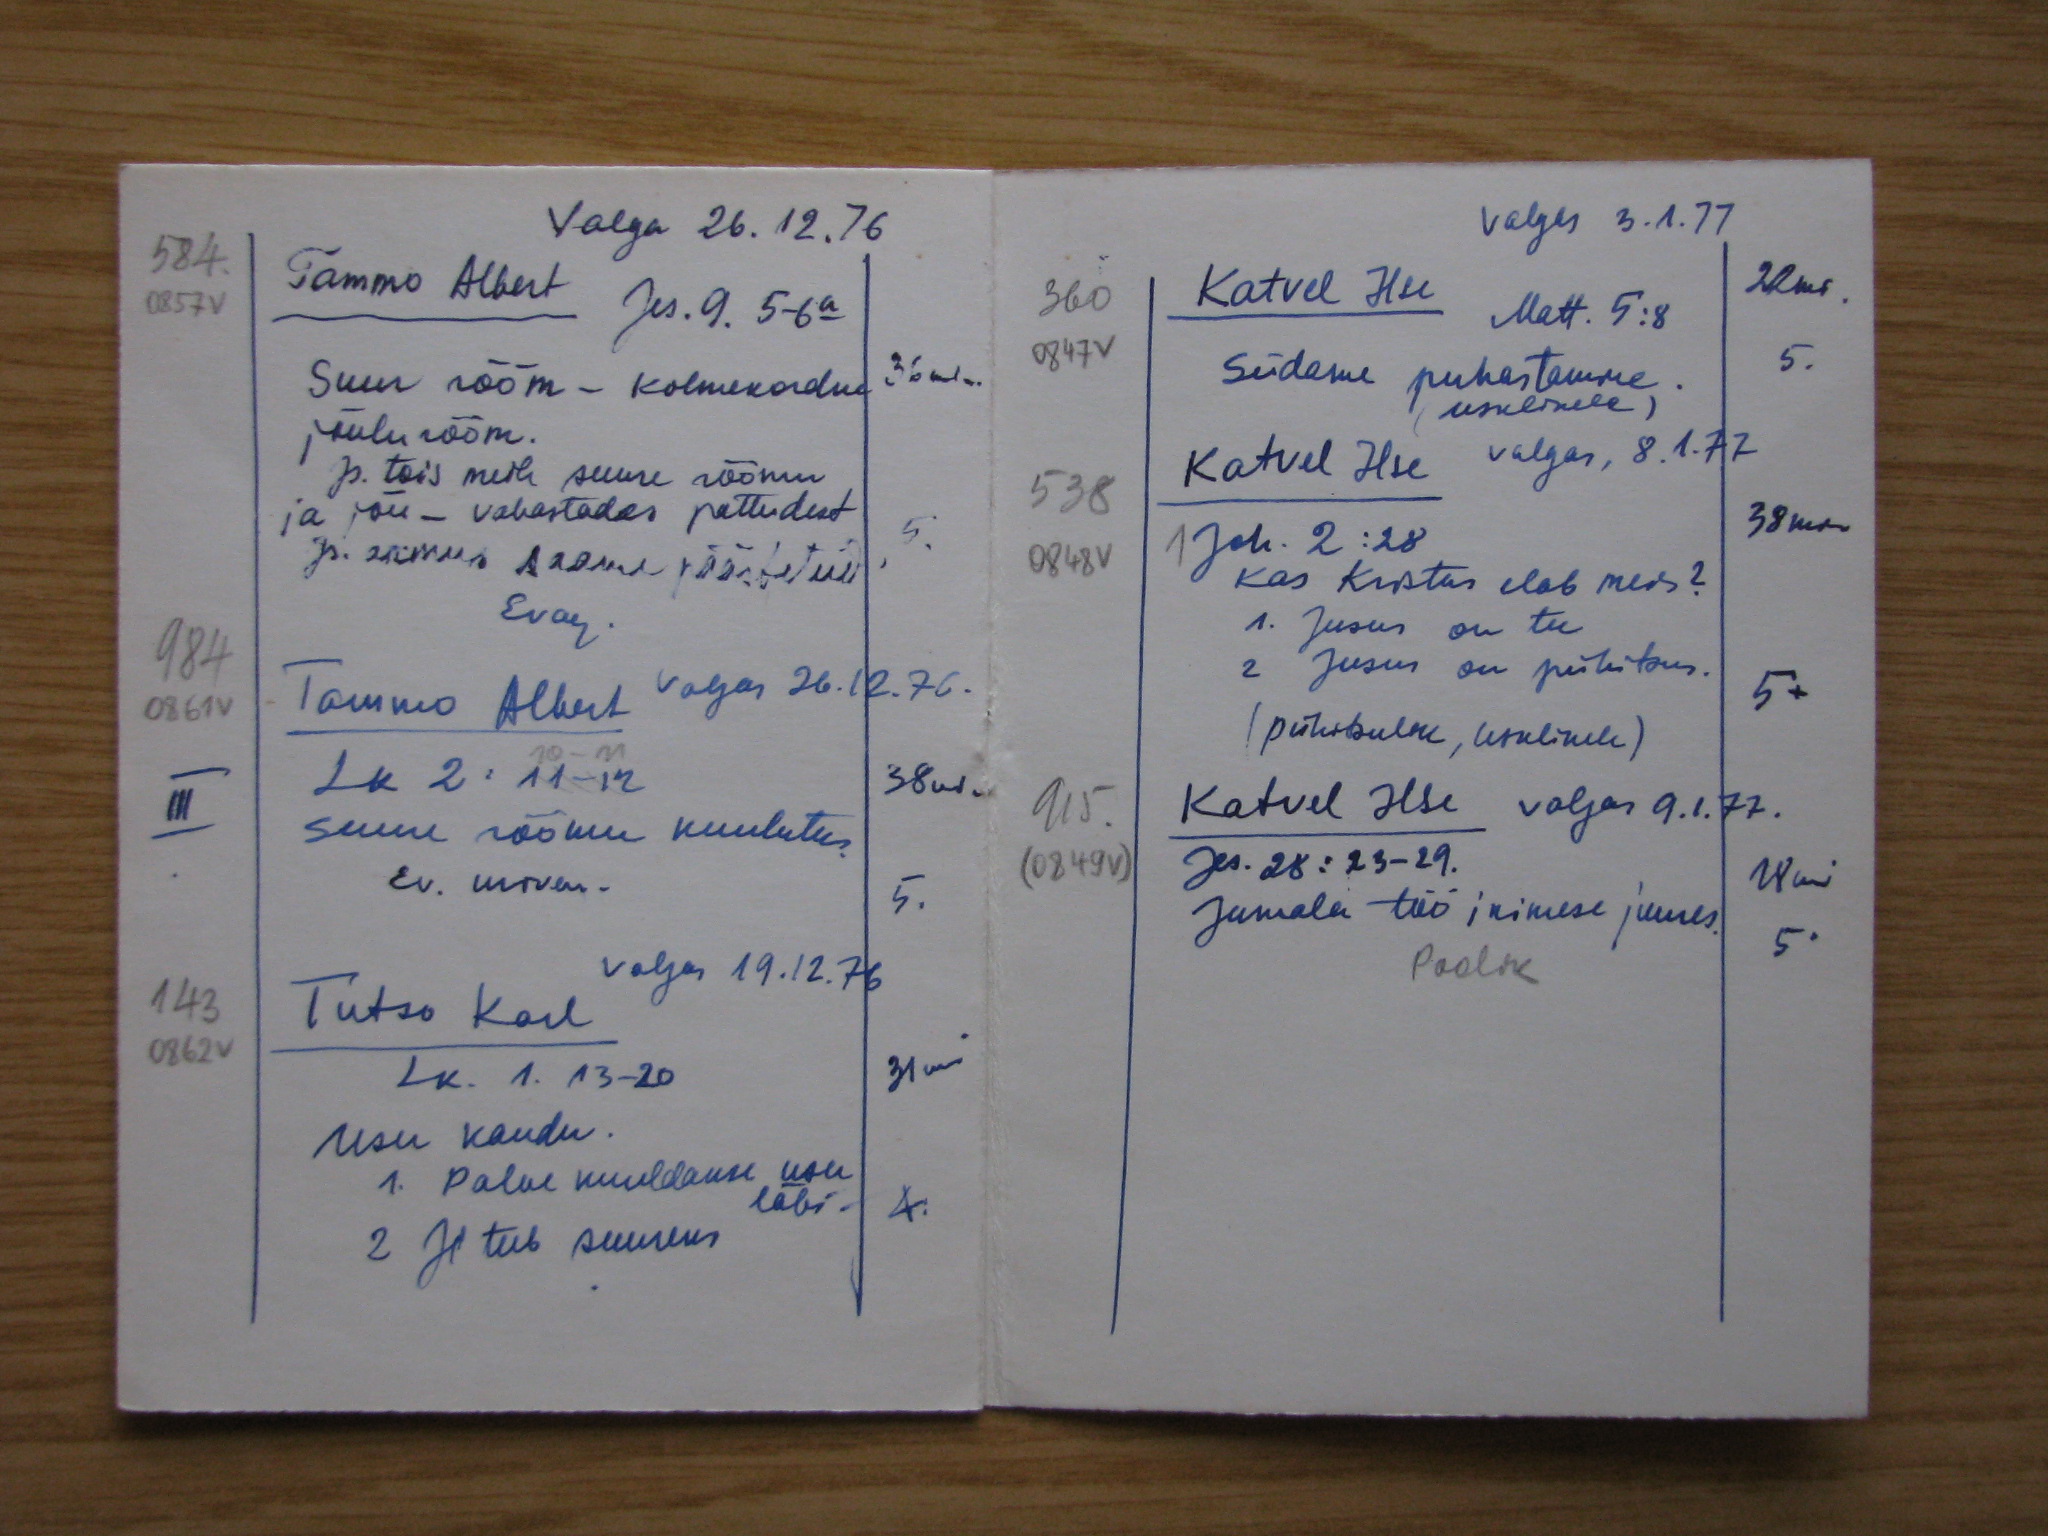 Valga 26.12.76
584.
0857V
Tammo Albert
Jes. 9. 5-6a
Suur rõõm - kolmekordne
36 min.
jõulurõõm.
Js. tõis meile suure rõõmu
ja jõu - vabastades pattudest
5.
Js.
Evang.
984
0861V
Tammo Albert Valgas 26.12.76.
10-11
Lk 2: 11-12
38 mi.
III
suure rõõmu kuulutus.
Ev.
5.
Valgas 19.12.76
143
0862V
Tutso Karl
Lk. 1. 13-20
31 mi
Usu kaudu.
1. Palve kuuldakse usu
läbi.
4.
2 teeb suureks
Valgas 3.1.77
360
0847V
Katvel Ilse
Matt. 5:8
22 mi.
Südame puhastamine.
5.
(usklikele)
538
0848V
Katvel Ilse Valgas, 8.1.77
1 Joh. 2:28
38 min
Kas Kristus elab meis?
1. Jeesus on tee
2 Jeesus on pühitsus.
5+
(pühitsuslik, usklikele)
915.
(0849V)
Katvel Ilse Valgas 9.1.77.
Jes. 28:23-29.
18 mi
Jumala töö inimese juures.
5
Poolik